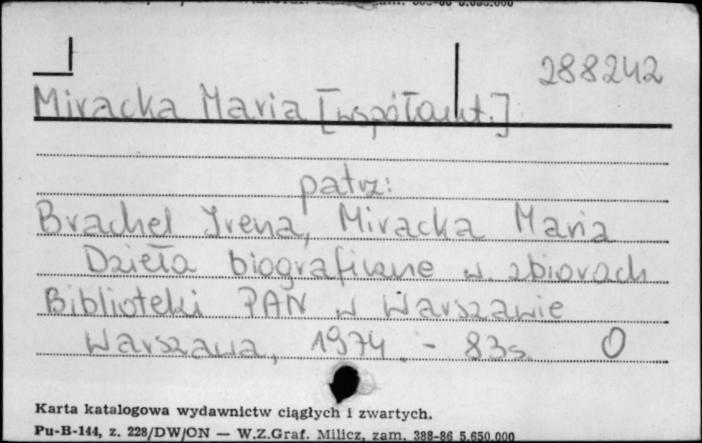 288242
Miracka Maria [współaut.]
patrz:
Brachel Irena, Miracka Maria
Dzieła biograficzne w zbiorach
Biblioteki PAN w Warszawie
Warszawa, 1974. - 83 s. O
Karta katalogowa wydawnictw ciągłych i zwartych.
Pu-B-144, z. 228/DW/ON — W.Z.Graf. Milicz, zam. 388-86 5.650.000